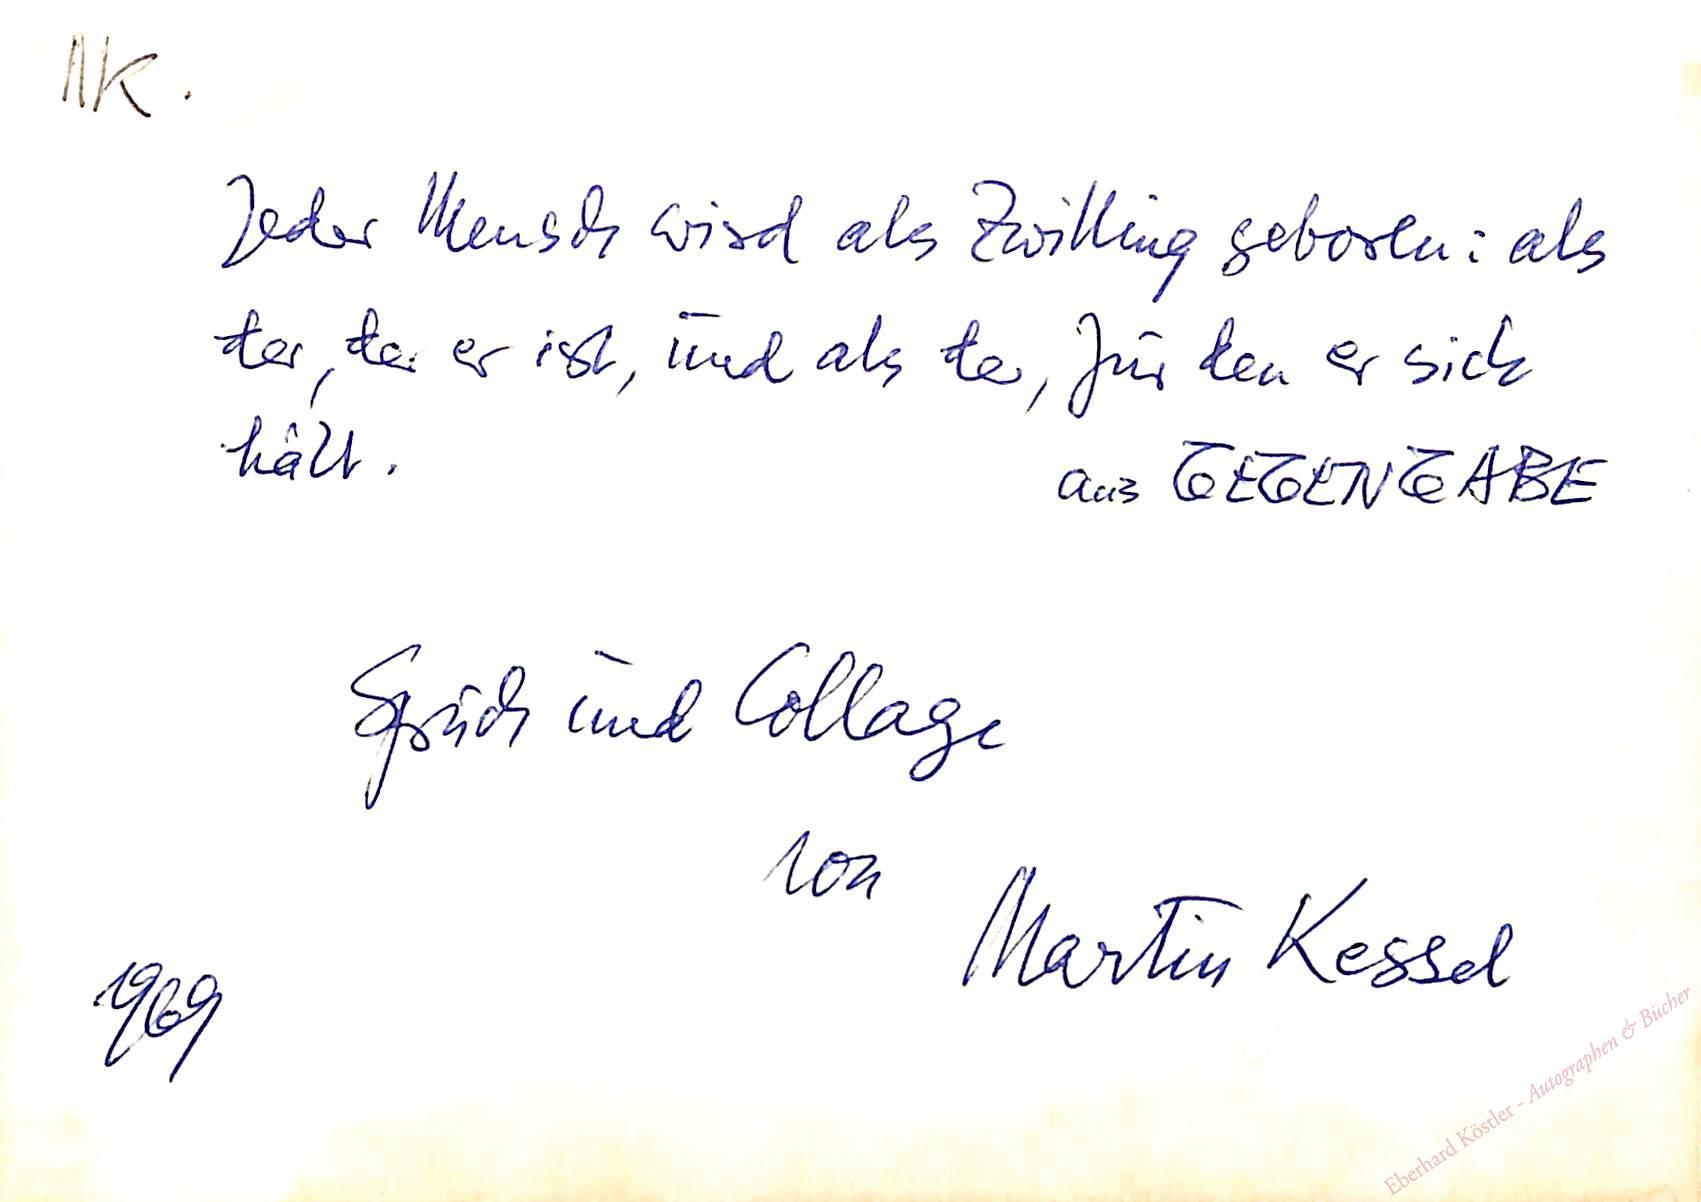 MK.
Jeder Mensch wird als Zwilling geboren: als
der, der er ist, und als der, für den er sich
hält.
aus GEGENGABE
Spruch und Collage
von
Martin Kessel
1969
Eberhard Köstler - Autographen & Bücher